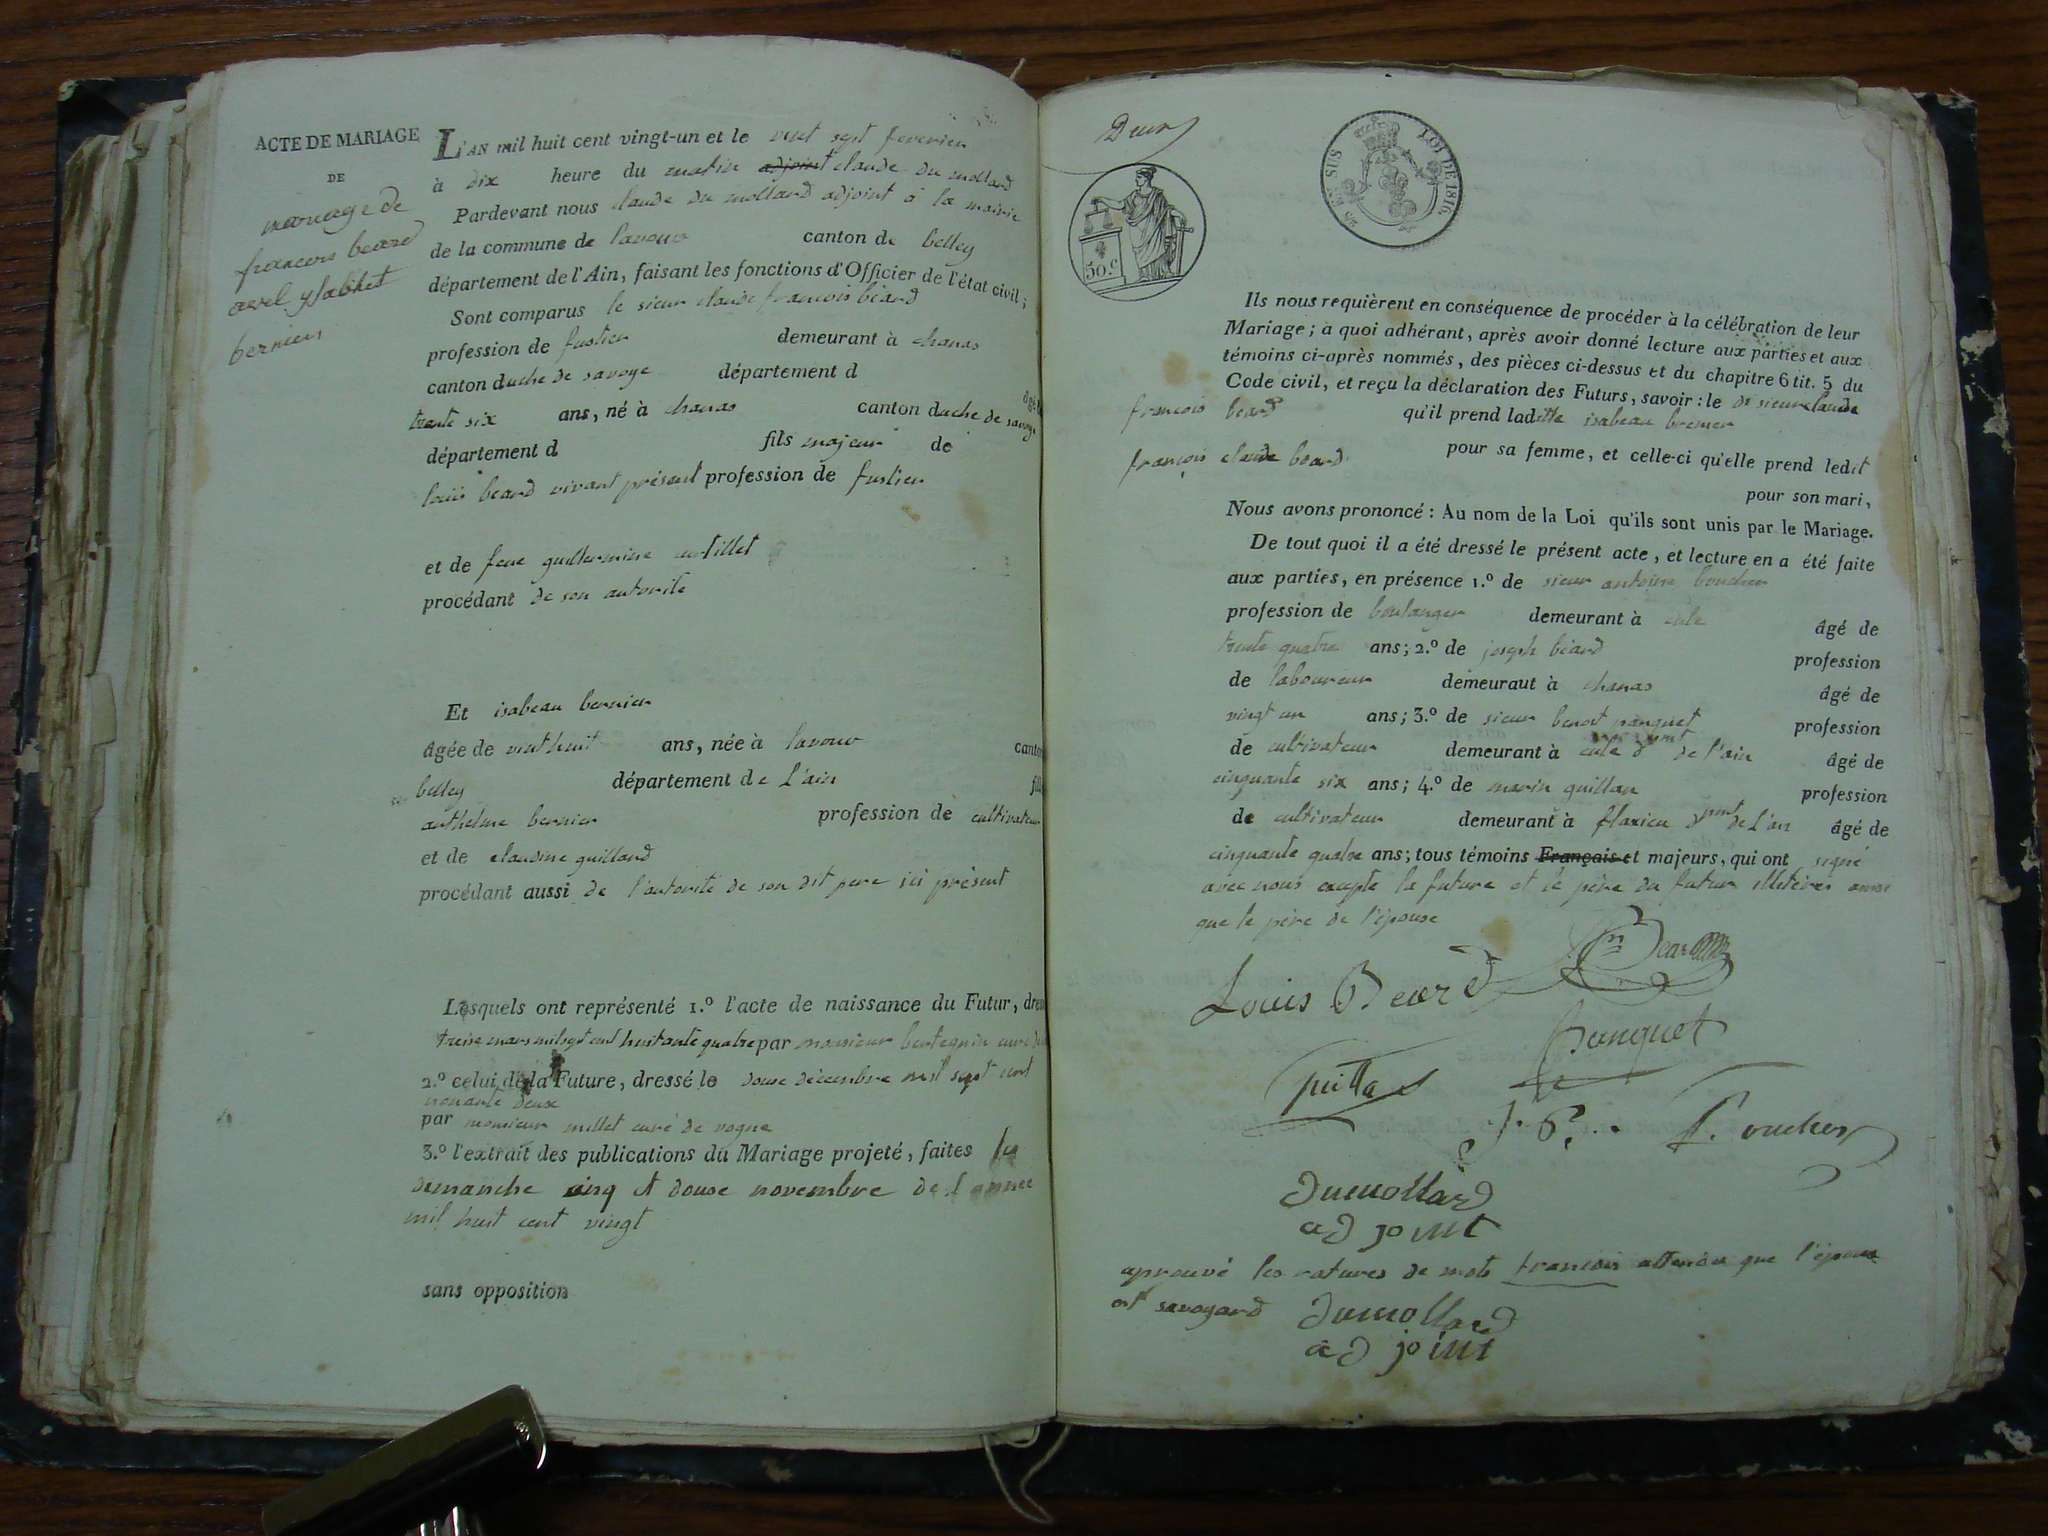 ACTE DE MARIAGE
DE
mariage de
francois beard
avel ysabket
bernier
L'AN mil huit cent vingt-un et le vint sept feverier
à dix heure du matin adjoint claude du mollard
Pardevant nous claude du mollard adjoint à la mairie
de la commune de lavour canton de belley
département de l'Ain, faisant les fonctions d'Officier de l'état civil;
Sont comparus le sieur claude francois béard
profession de fustier demeurant à chanas
canton duche de savoye département d
âgé
trante six ans, né à chanas canton duche de savoye
département d fils majeur de
louis beard vivant présent profession de fustier
et de feue guillermine
procédant de son autorite
Et isabeau bernier
âgée de vint huit ans, née à lavour canton
belley département de L'ain
anthelme bernier profession de cultivateur
et de claudine guilland
procédant aussi de l'autorité de son dit pere ici présent
Lesquels ont représenté 1.º l'acte de naissance du Futur, dres
treise mars mil sept cent huitante quatre par monsieur curé
2.º celui de la Future, dressé le douse décembre mil sept cent
nonante deux
par monsieur millet curé de vogne
3.º l'extrait des publications du Mariage projeté, faites les
dimanche cinq et douse novembre de l'année
mil huit cent vingt
sans opposition
Deux
50.c
EN SUS
LOI DE 1816.
Ils nous requièrent en conséquence de procéder à la célébration de leur
Mariage; à quoi adhérant, après avoir donné lecture aux parties et aux
témoins ci-après nommés, des pièces ci-dessus et du chapitre 6 tit. 5 du
Code civil, et reçu la déclaration des Futurs, savoir: le dt sieur claude
francois beard qu'il prend ladite isabeau bernier
pour sa femme, et celle-ci qu'elle prend ledit
françois claude beard
pour son mari,
Nous avons prononcé: Au nom de la Loi qu'ils sont unis par le Mariage.
De tout quoi il a été dressé le présent acte, et lecture en a été faite
aux parties, en présence 1.º de sieur antoine boucher
profession de boulanger demeurant à cule âgé de
trente quatre ans; 2.º de joseph béard profession
de laboureur demeuraut à chanas âgé de
vingt un ans; 3.º de sieur benoit panguet profession
de cultivateur demeurant à cule dpmt de l'ain âgé de
cinquante six ans; 4.º de marin guillan profession
de cultivateur demeurant à flaxieu dpmt de L'ain âgé de
cinquante quatre ans; tous témoins Français et majeurs, qui ont signé
avec nous excepté la future et le père du futur illitéres ainsi
que le père de l'épouse
Louis Beard
Beard
Panguet
J. B.
Boucher
Dumollard
adjoint
aprouvé les ratures de mots francois attendu que l'époux
est savoyard Dumollard
adjoint